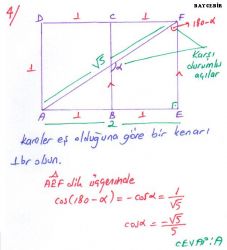 BAYGEBİR
4/
D 1 C 1 F
180-α
1 √5 α 1
Karşı
durumlu
açılar
A 1 B 1 E
2
kareler eş olduğuna göre bir kenarı
1br olsun.
AEF dik üçgeninde
cos(180-α) = -cosα = 1/√5
cosα = -√5/5
CEVAP: A